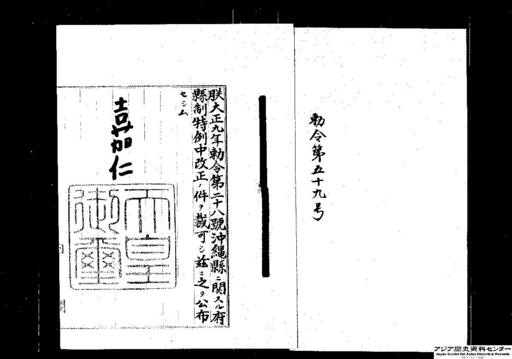 勅令第五十九号
朕大正九年勅令第二十八號沖縄縣ニ関スル府
縣制特例中改正ノ件ヲ裁可シ茲ニ之ヲ公布
セシム
嘉仁
天皇
御璽
アジア歴史資料センター
Japan Center for Asian Historical Records